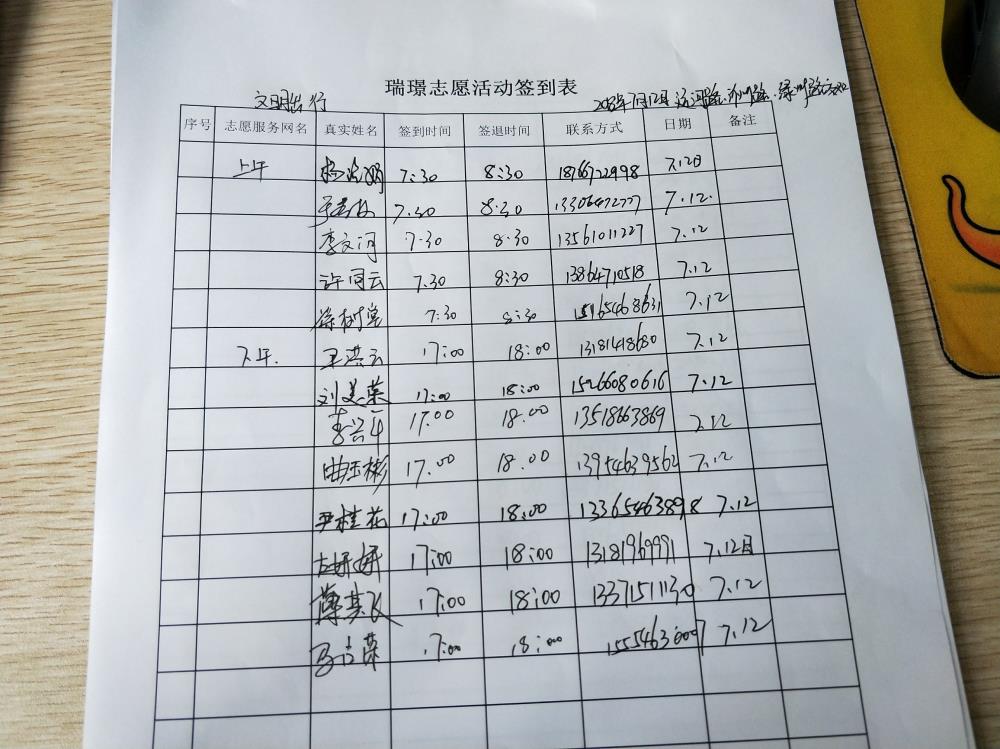 瑞璟志愿活动签到表
文明出行 2018年7月12日
序号 志愿服务网名 真实姓名 签到时间 签退时间 联系方式 日期 备注
上午 7:30 8:30 18766722998 7.12日
7.30 8.30 13306472777 7.12.
李文河 7.30 8.30 13561011227 7.12
许同云 7.30 8:30 13864710518 7.12
徐树堂 7:30 8:30 15965468631 7.12
下午. 王洪云 17:00 18:00 13181418680 7.12
刘美荣 17:00 18:00 15266080616 7.12
李兴军 17.00 18.00 13518663869 7.12
曲玉彬 17.00 18.00 13954639562 7.12
尹桂花 17:00 18:00 13365463898 7.12
左妍妍 17:00 18:00 13181969991 7.12日
薄其飞 17:00 18:00 13371511130 7.12
17:00 18:00 7.12